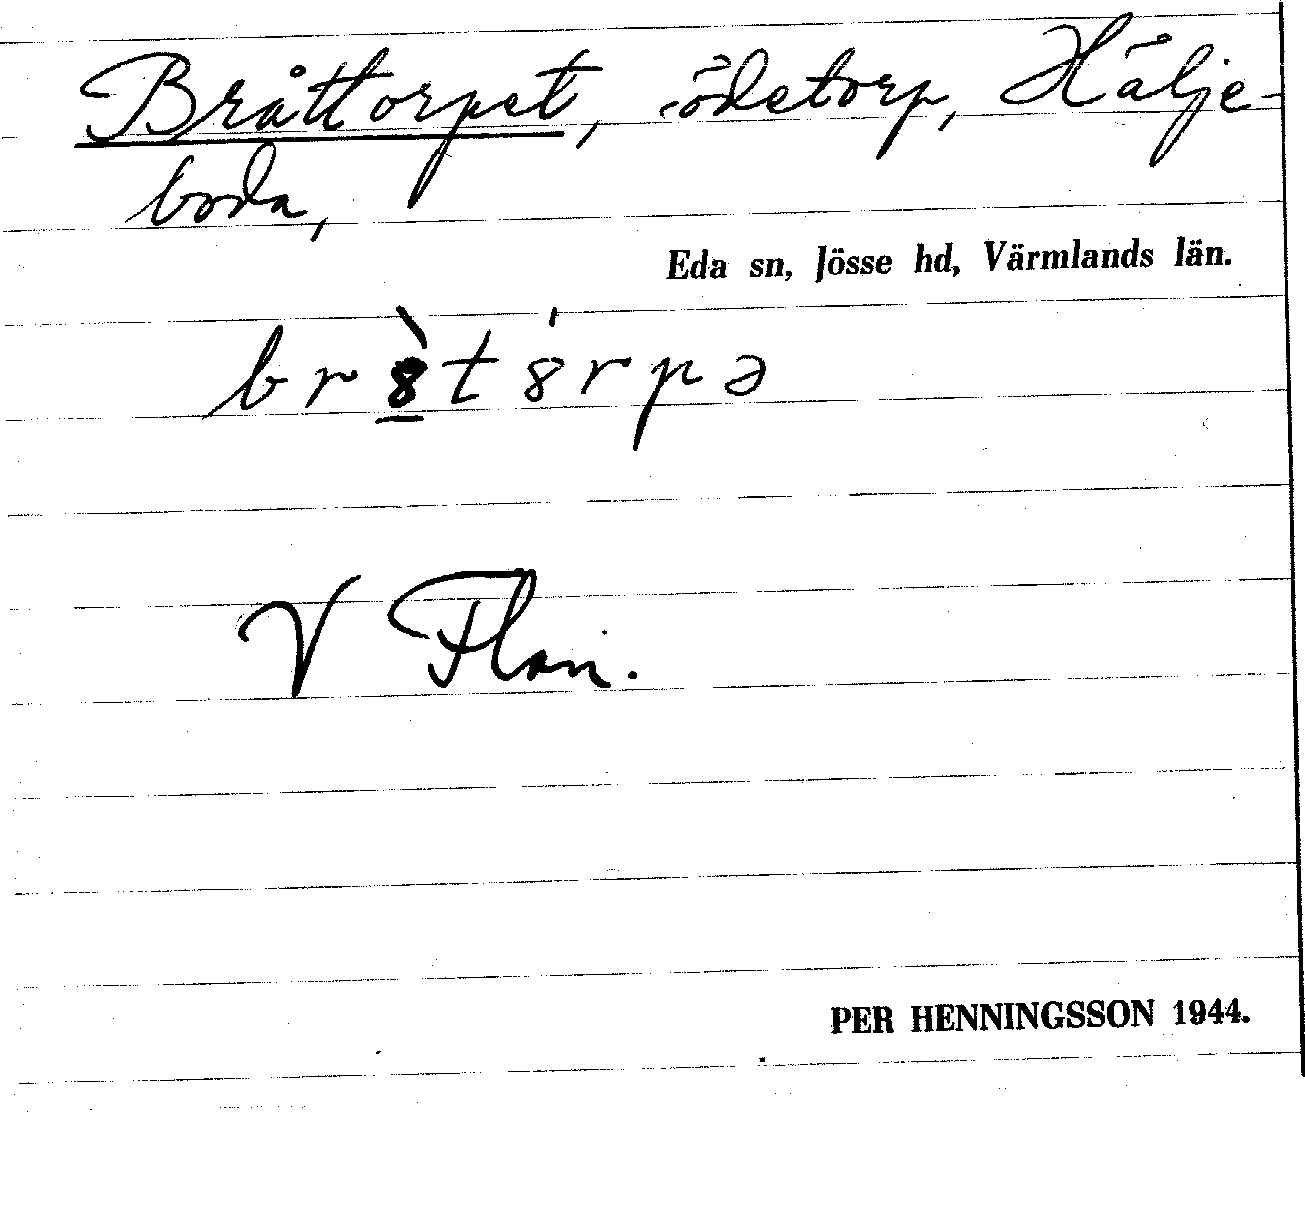 Bråttorpet, ödetorp, Hälje-
boda,
Eda sn, Jösse hd, Värmlands län.
br8̱̀t8́rpə
V Flan.
PER HENNINGSSON 1944.